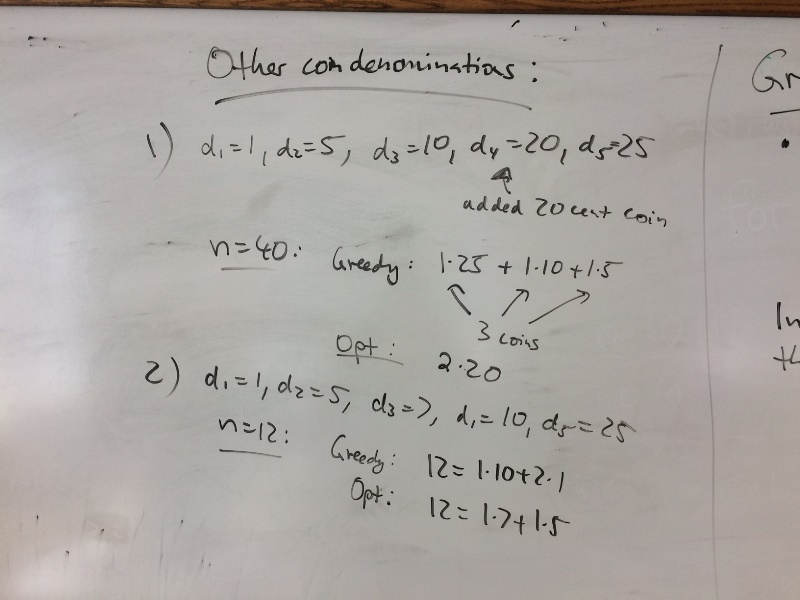 Other coin denominations:
1) d₁=1, d₂=5, d₃=10, d₄=20, d₅=25
added 20 cent coin
n=40: Greedy: 1·25 + 1·10 + 1·5
3 coins
Opt: 2·20
2) d₁=1, d₂=5, d₃=7, d₁=10, d₅=25
n=12:
Greedy: 12=1·10+2·1
Opt: 12=1·7+1·5
Gr
In
th